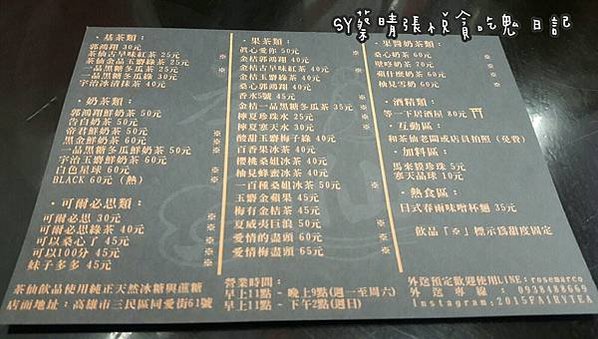 SY蔡晴張悅貪吃鬼 日記
·基茶類:
郭鴻翔 30元
茶仙古早味紅茶 25元
茶仙金品玉麝綠茶 25元
一品黑糖冬瓜茶 25元 ※
一品黑糖冬瓜綠 30元 ※
宇治冰清抹茶 40元
·奶茶類:
郭鴻翔鮮奶茶 50元
告白奶茶 50元
帝君鮮奶茶 50元 ※
黑金鮮奶茶 60元 ※
一品黑糖冬瓜鮮奶茶 50元 ※
宇治玉麝鮮奶茶 60元
白色星球 60元
BLACK 60元(熱) ※
·可爾必思類:
可爾必思 30元 ※
可爾必思綠茶 40元 ※
可以桑心了 45元 ※
可以100分 45元 ※
妹子多多 45元 ※
·果茶類:
真心愛你 50元
金桔郭鴻翔 40元
金桔古早味紅茶 40元
金桔玉麝綠茶 40元
桑心郭鴻翔 40元
香水5號 45元
金桔一品黑糖冬瓜茶 35元 ※
檸夏珍珠水 25元
檸夏寒天水 30元
酸甜玉麝梅子綠 40元
百香果冰茶 40元
櫻桃桑姐冰茶 40元
柚見蜂蜜冰茶 40元
一百種桑姐冰茶 50元 ※
玉麝金蘋果 45元
梅有金桔茶 45元
夏威夷巨浪 50元 ※
愛情的盡頭 60元 ※
愛情梅盡頭 65元 ※
·果醬奶茶類:
桑心奶茶 60元 ※
壁咚奶茶 70元 ※
蘋什麼奶茶 60元 ※
柚見雪奶 60元 ※
·酒精類:
等一下居酒屋 80元
·互動區:
和茶仙老闆或店員拍照 (免費)
·加料區:
馬來緩珍珠 5元
寒天晶球 10元
·熱食區:
日式春雨味噌杯麵 35元
飲品「※」標示為甜度固定
茶仙飲品使用純正天然冰糖與蔗糖
店面地址:高雄市三民區同愛街61號
營業時間:
早上11點 - 晚上9點(週一至周六)
早上11點 - 下午2點(週日)
外送預定歡迎使用LINE:rosemarco
外送專線:0938488669
Instagram:2015FAIRYTEA